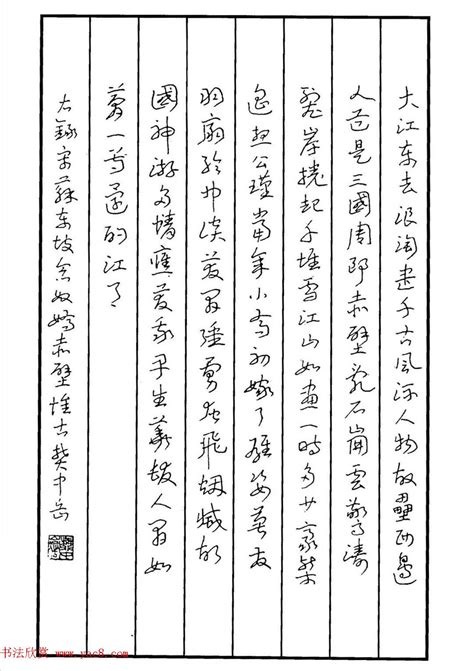 大江东去浪淘尽千古风流人物故壘西邊
人道是三國周郎赤壁乱石崩雲驚濤
裂岸捲起千堆雪江山如畫一時多少豪杰
遥想公瑾當年小喬初嫁了雄姿英发
羽扇綸巾談笑间强虜灰飛烟滅故
國神游多情應笑我早生華髮人间如
夢一尊還酹江月
右錄宋蘇东坡念奴嬌赤壁怀古樊中岳
书法欣赏 www.yac8.com